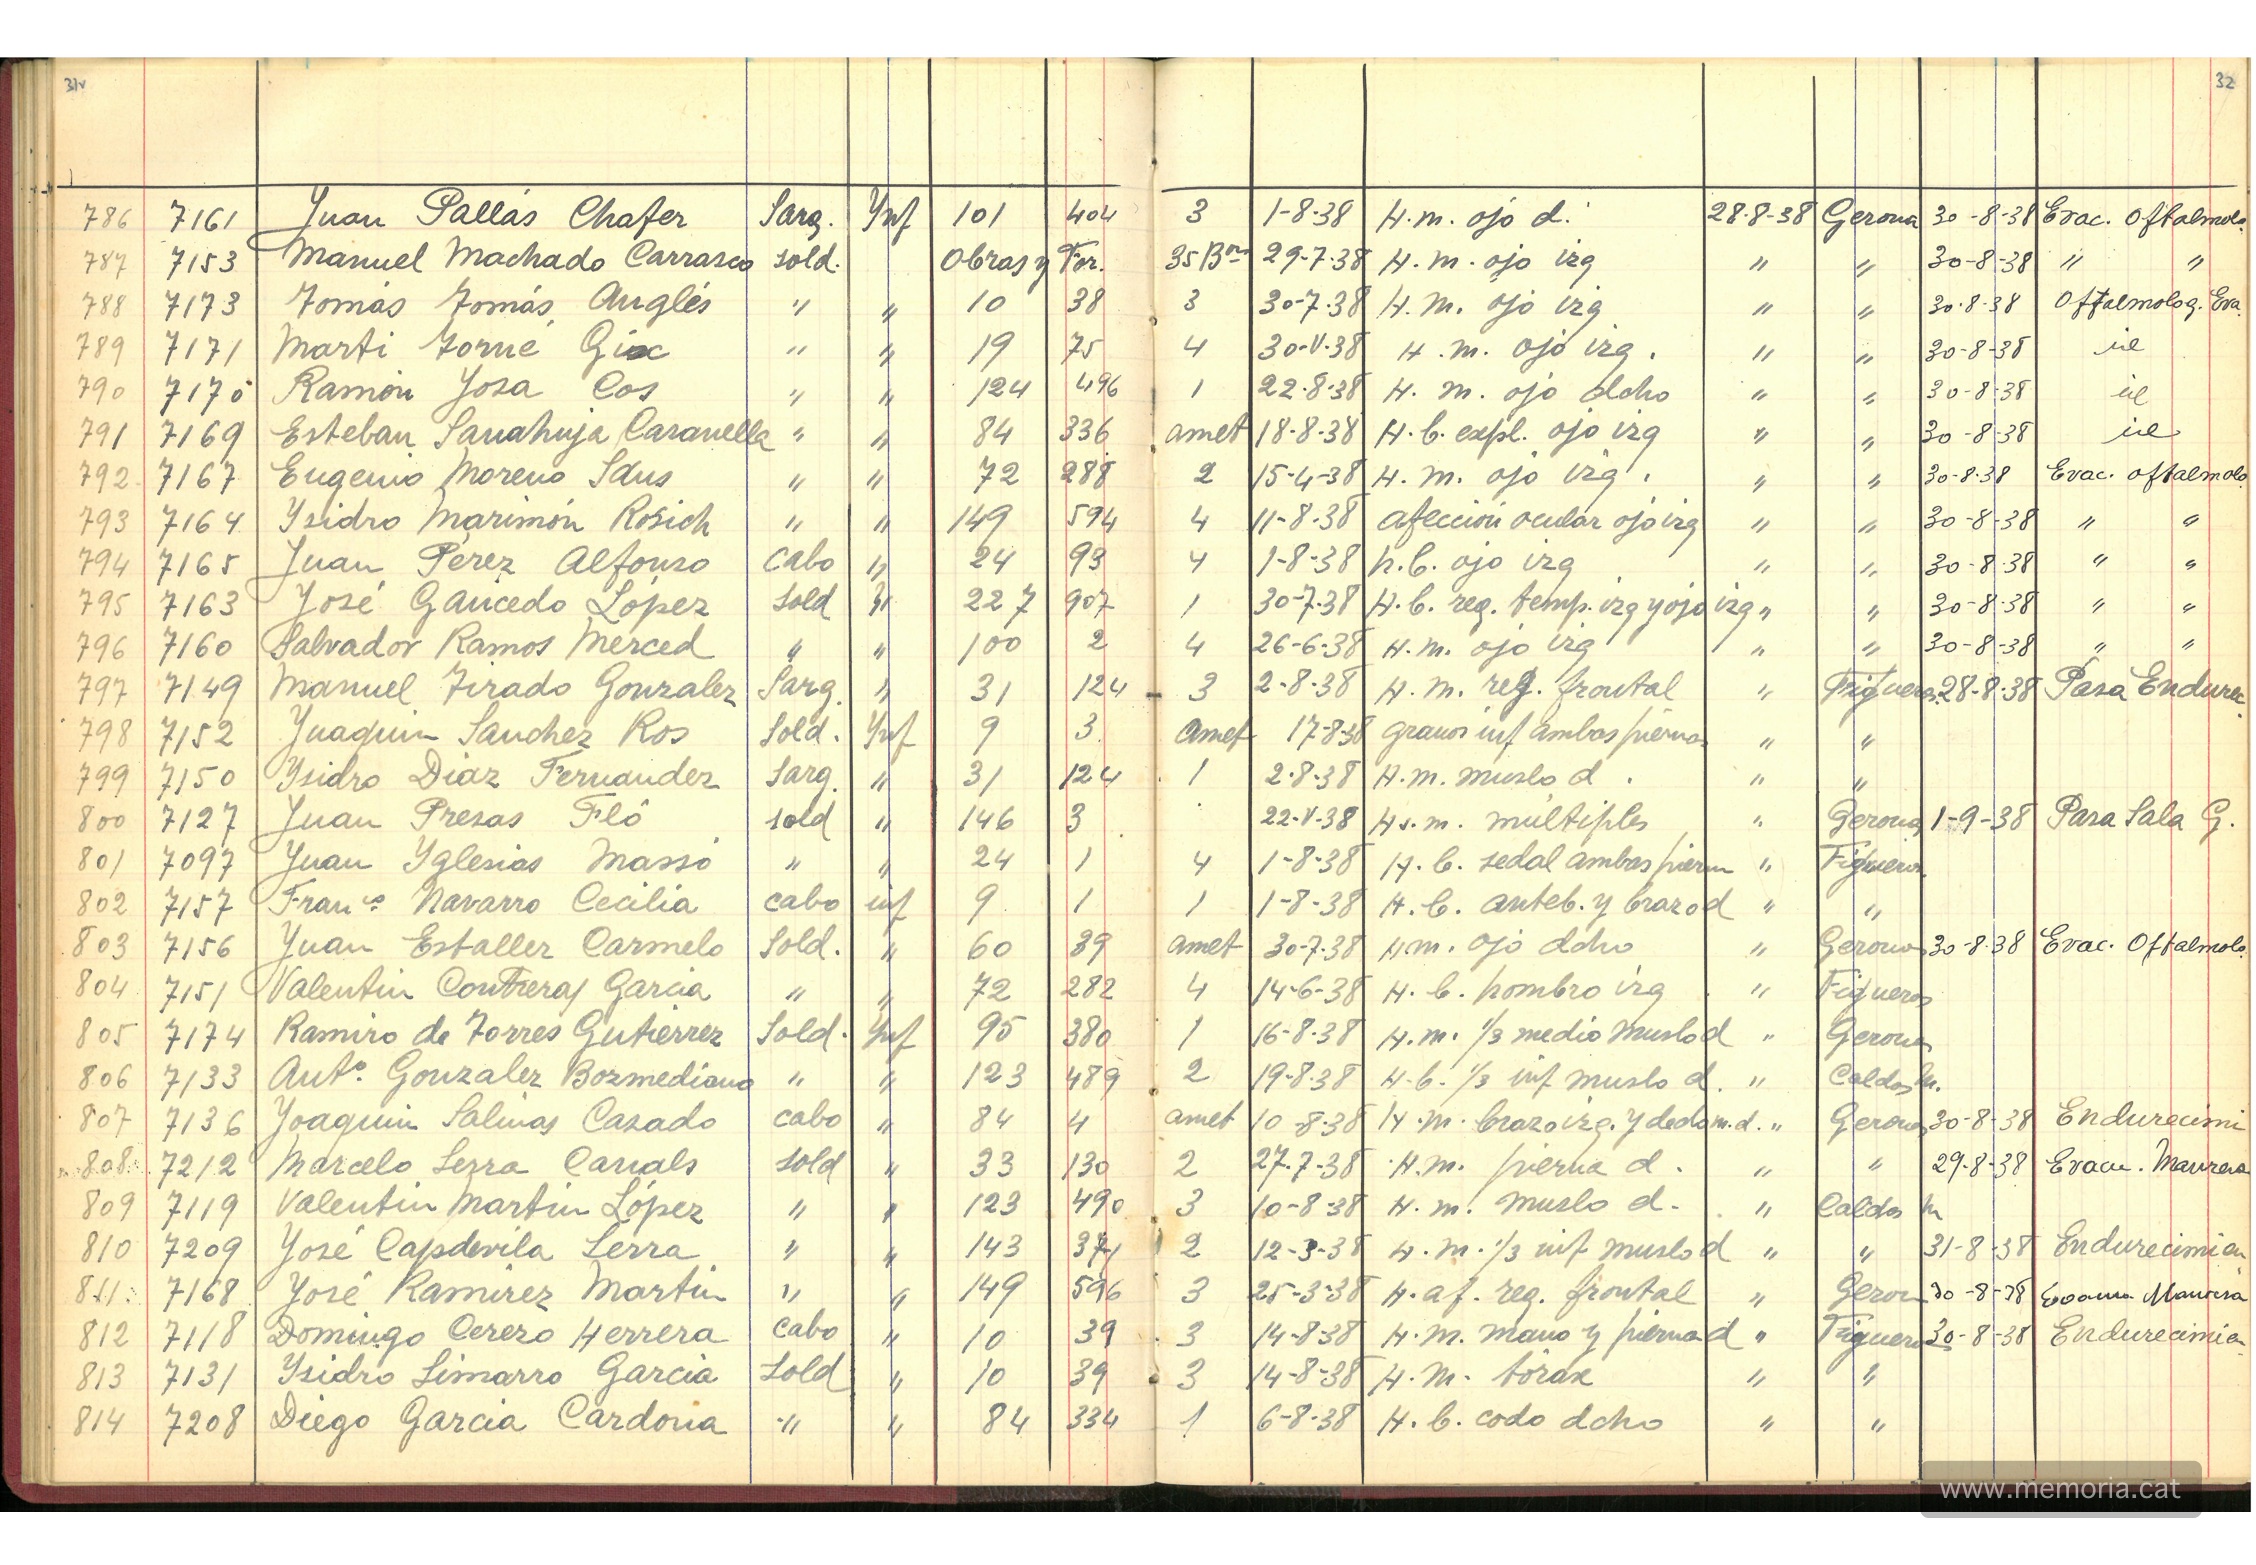 31v 32
786 7161 Juan Pallás Chafer Sarg. Ynf 101 404 3 1-8-38 H.m. ojo d. 28-8-38 Gerona 30-8-38 Evac. Oftalmolo.
787 7153 Manuel Machado Carrasco sold. Obras y For. 35 Bon 29-7-38 H.m. ojo izq " " 30-8-38 " "
788 7173 Tomás Tomás Anglés " " 10 38 3 30-7-38 H.m. ojo izq " " 30-8-38 Oftalmolog. Eva.
789 7171 Marti Torné " " 19 75 4 30-V-38 H.m. ojo izq. " " 30-8-38
790 7170 Ramón Yosa Cos " " 124 496 1 22-8-38 H.m. ojo dcho " " 30-8-38
791 7169 Esteban Sanahuja Caranella " " 84 336 amet 18-8-38 H.b. expl. ojo izq " " 30-8-38
792 7167 Eugenio Moreno " " 72 288 2 15-4-38 H.m. ojo izq. " " 30-8-38 Evac. oftalmolo.
793 7164 Ysidro Marimón Rosich " " 149 594 4 11-8-38 afección ocular ojo izq " " 30-8-38 " "
794 7165 Juan Pérez Alfonso cabo " 24 93 4 1-8-38 h.b. ojo izq " " 30-8-38 " "
795 7163 José Gancedo López sold " 227 907 1 30-7-38 H.b. reg. temp. izq y ojo izq " " 30-8-38 " "
796 7160 Salvador Ramos Merced " " 100 2 4 26-6-38 H.m. ojo izq " " 30-8-38 " "
797 7149 Manuel Tirado Gonzalez Sarg. " 31 124 3 2-8-38 H.m. reg. frontal " Figueras 28-8-38 Pasa Endurec.
798 7152 Juaquin Sanchez Ros Sold. Ynf 9 3 amet 17-8-38 granos inf ambas piernas " "
799 7150 Ysidro Diaz Fernandez Sarg. " 31 124 1 2-8-38 H.m. muslo d. " "
800 7127 Juan Presas Fló sold " 146 3 22-V-38 Hs.m. múltiples " Gerona 1-9-38 Pasa Sala G.
801 7097 Juan Yglesias Massó " " 24 1 4 1-8-38 H.b. sedal ambas piern " Figueras
802 7157 Franco Navarro Cecilia cabo inf 9 1 1 1-8-38 H.b. anteb. y brazo d " "
803 7156 Juan Estaller Carmelo Sold. " 60 39 amet 30-7-38 H.m. ojo dcho " Gerona 30-8-38 Evac. Oftalmolo.
804 7151 Valentin Contreras Garcia " " 72 282 4 14-6-38 H.b. hombro izq " Figueras
805 7174 Ramiro de Torres Gutierrez Sold. Ynf 95 380 1 16-8-38 H.m. 1/3 medio muslo d " Gerona
806 7133 Anto. Gonzalez Bozmediano " " 123 489 2 19-8-38 H.b. 1/3 inf muslo d. " Caldas M.
807 7136 Joaquin Salinas Casado cabo " 84 4 amet 10-8-38 H.m. brazo izq. y dedo m.d. " Gerona 30-8-38 Endurecimi
808 7212 Marcelo Serra Canals sold " 33 130 2 27-7-38 H.m. pierna d. " " 29-8-38 Evacu. Manresa
809 7119 Valentin Martin López " " 123 490 3 10-8-38 H.m. muslo d. " Caldas M
810 7209 José Capdevila Serra " " 143 371 2 12-3-38 H.m. 1/3 inf muslo d " " 31-8-38 Endurecimien
811 7168 José Ramirez Martin " " 149 596 3 25-3-38 H. af. reg. frontal " Gerona 30-8-38 Evacu. Manresa
812 7118 Domingo Cerezo Herrera cabo " 10 39 3 14-8-38 H.m. mano y pierna d " Figueras 30-8-38 Endurecimien
813 7131 Ysidro Simarro Garcia Sold " 10 39 3 14-8-38 H.m. tórax " "
814 7208 Diego Garcia Cardona " " 84 334 1 6-8-38 H.b. codo dcho " "
www.memoria.cat